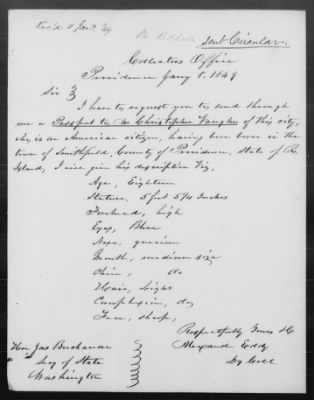 Rec'd 11 Jany
sent Circular.
Collectors Office
Providence Jany 8. 1849
Sir
I have to request you to send through
me a Passport to Mr Christopher Vaughn of this city,
who is an American citizen, having been born in the
town of Smithfield, County of Providence, State of R.
Island, I will give his descriptive Viz,
Age, Eighteen
Stature, 5 feet 5¾ Inches
Forehead, high
Eyes, Blue
Nose, grecian
Mouth, medium size
Chin, do
Hair, Light
Complexion, do
Face, sharp,
Respectfully Yours &c
Alexander Eddy
Dy Coll
Hon Jas Buchanan
Secy of State
Washington